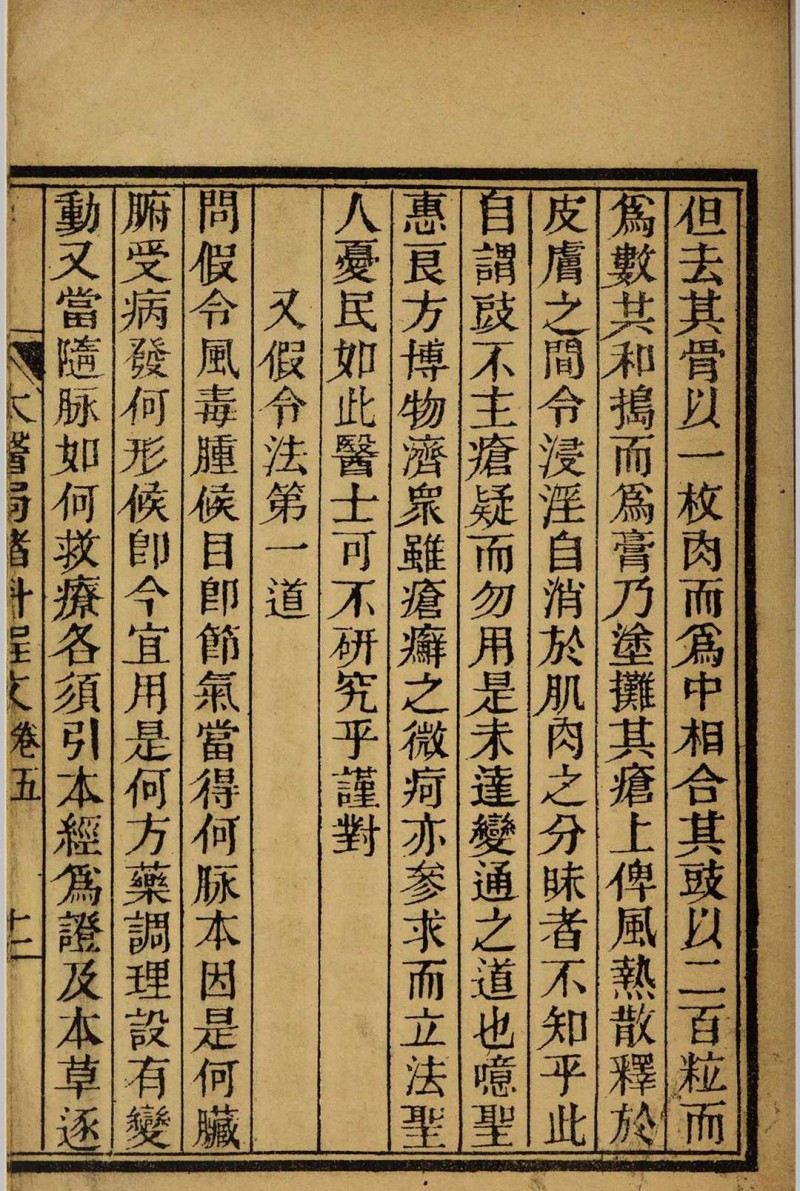 但去其骨以一枚肉而爲中相合其豉以二百粒而
爲數共和搗而爲膏乃塗攤其瘡上俾風熱散釋於
皮膚之間令浸淫自消於肌肉之分昧者不知乎此
自謂豉不主瘡疑而勿用是未達變通之道也噫聖
惠良方博物濟衆雖瘡癬之微疴亦參求而立法聖
人憂民如此醫士可不研究乎謹對
又假令法第一道
問假令風毒腫候目卽節氣當得何脉本因是何臟
腑受病發何形候卽今宜用是何方藥調理設有變
動又當隨脉如何救療各須引本經爲證及本草逐
太醫局諸科程文 卷五 十二